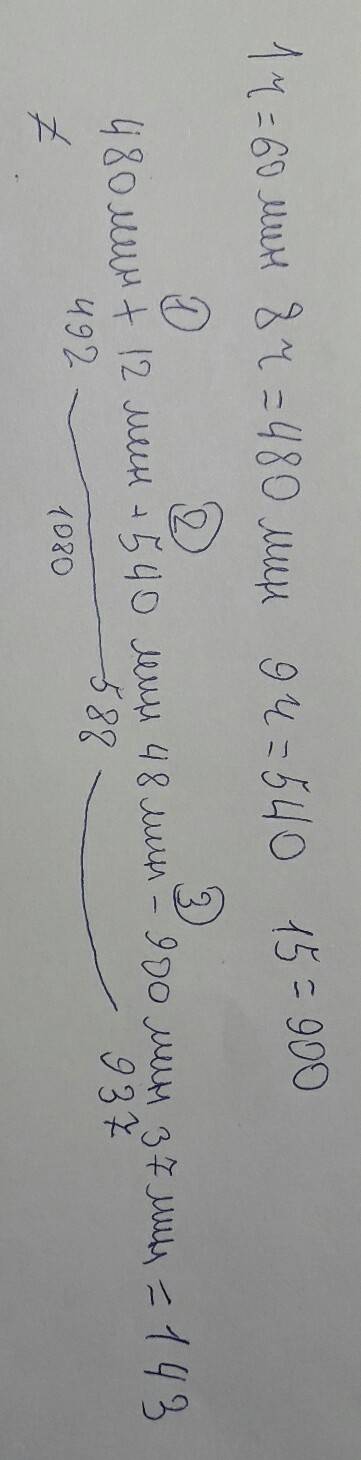 1ч = 60 мин 8ч = 480 мин 9ч = 540 15 = 900
① ② ③
480 мин + 12 мин + 540 мин 48 мин - 900 мин 37 мин = 143
492 588 937
1080